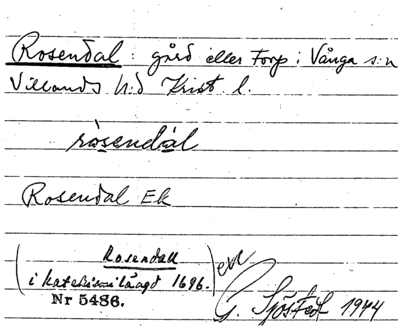 Rosendal: gård eller Torp i Vånga s:n
Villands h:d Krist. l.
rósendàl
Rosendal Ek
(Rosendall
i katekismilängd 1696.) enl.
Nr 5486.
G. Sjöstedt 1944